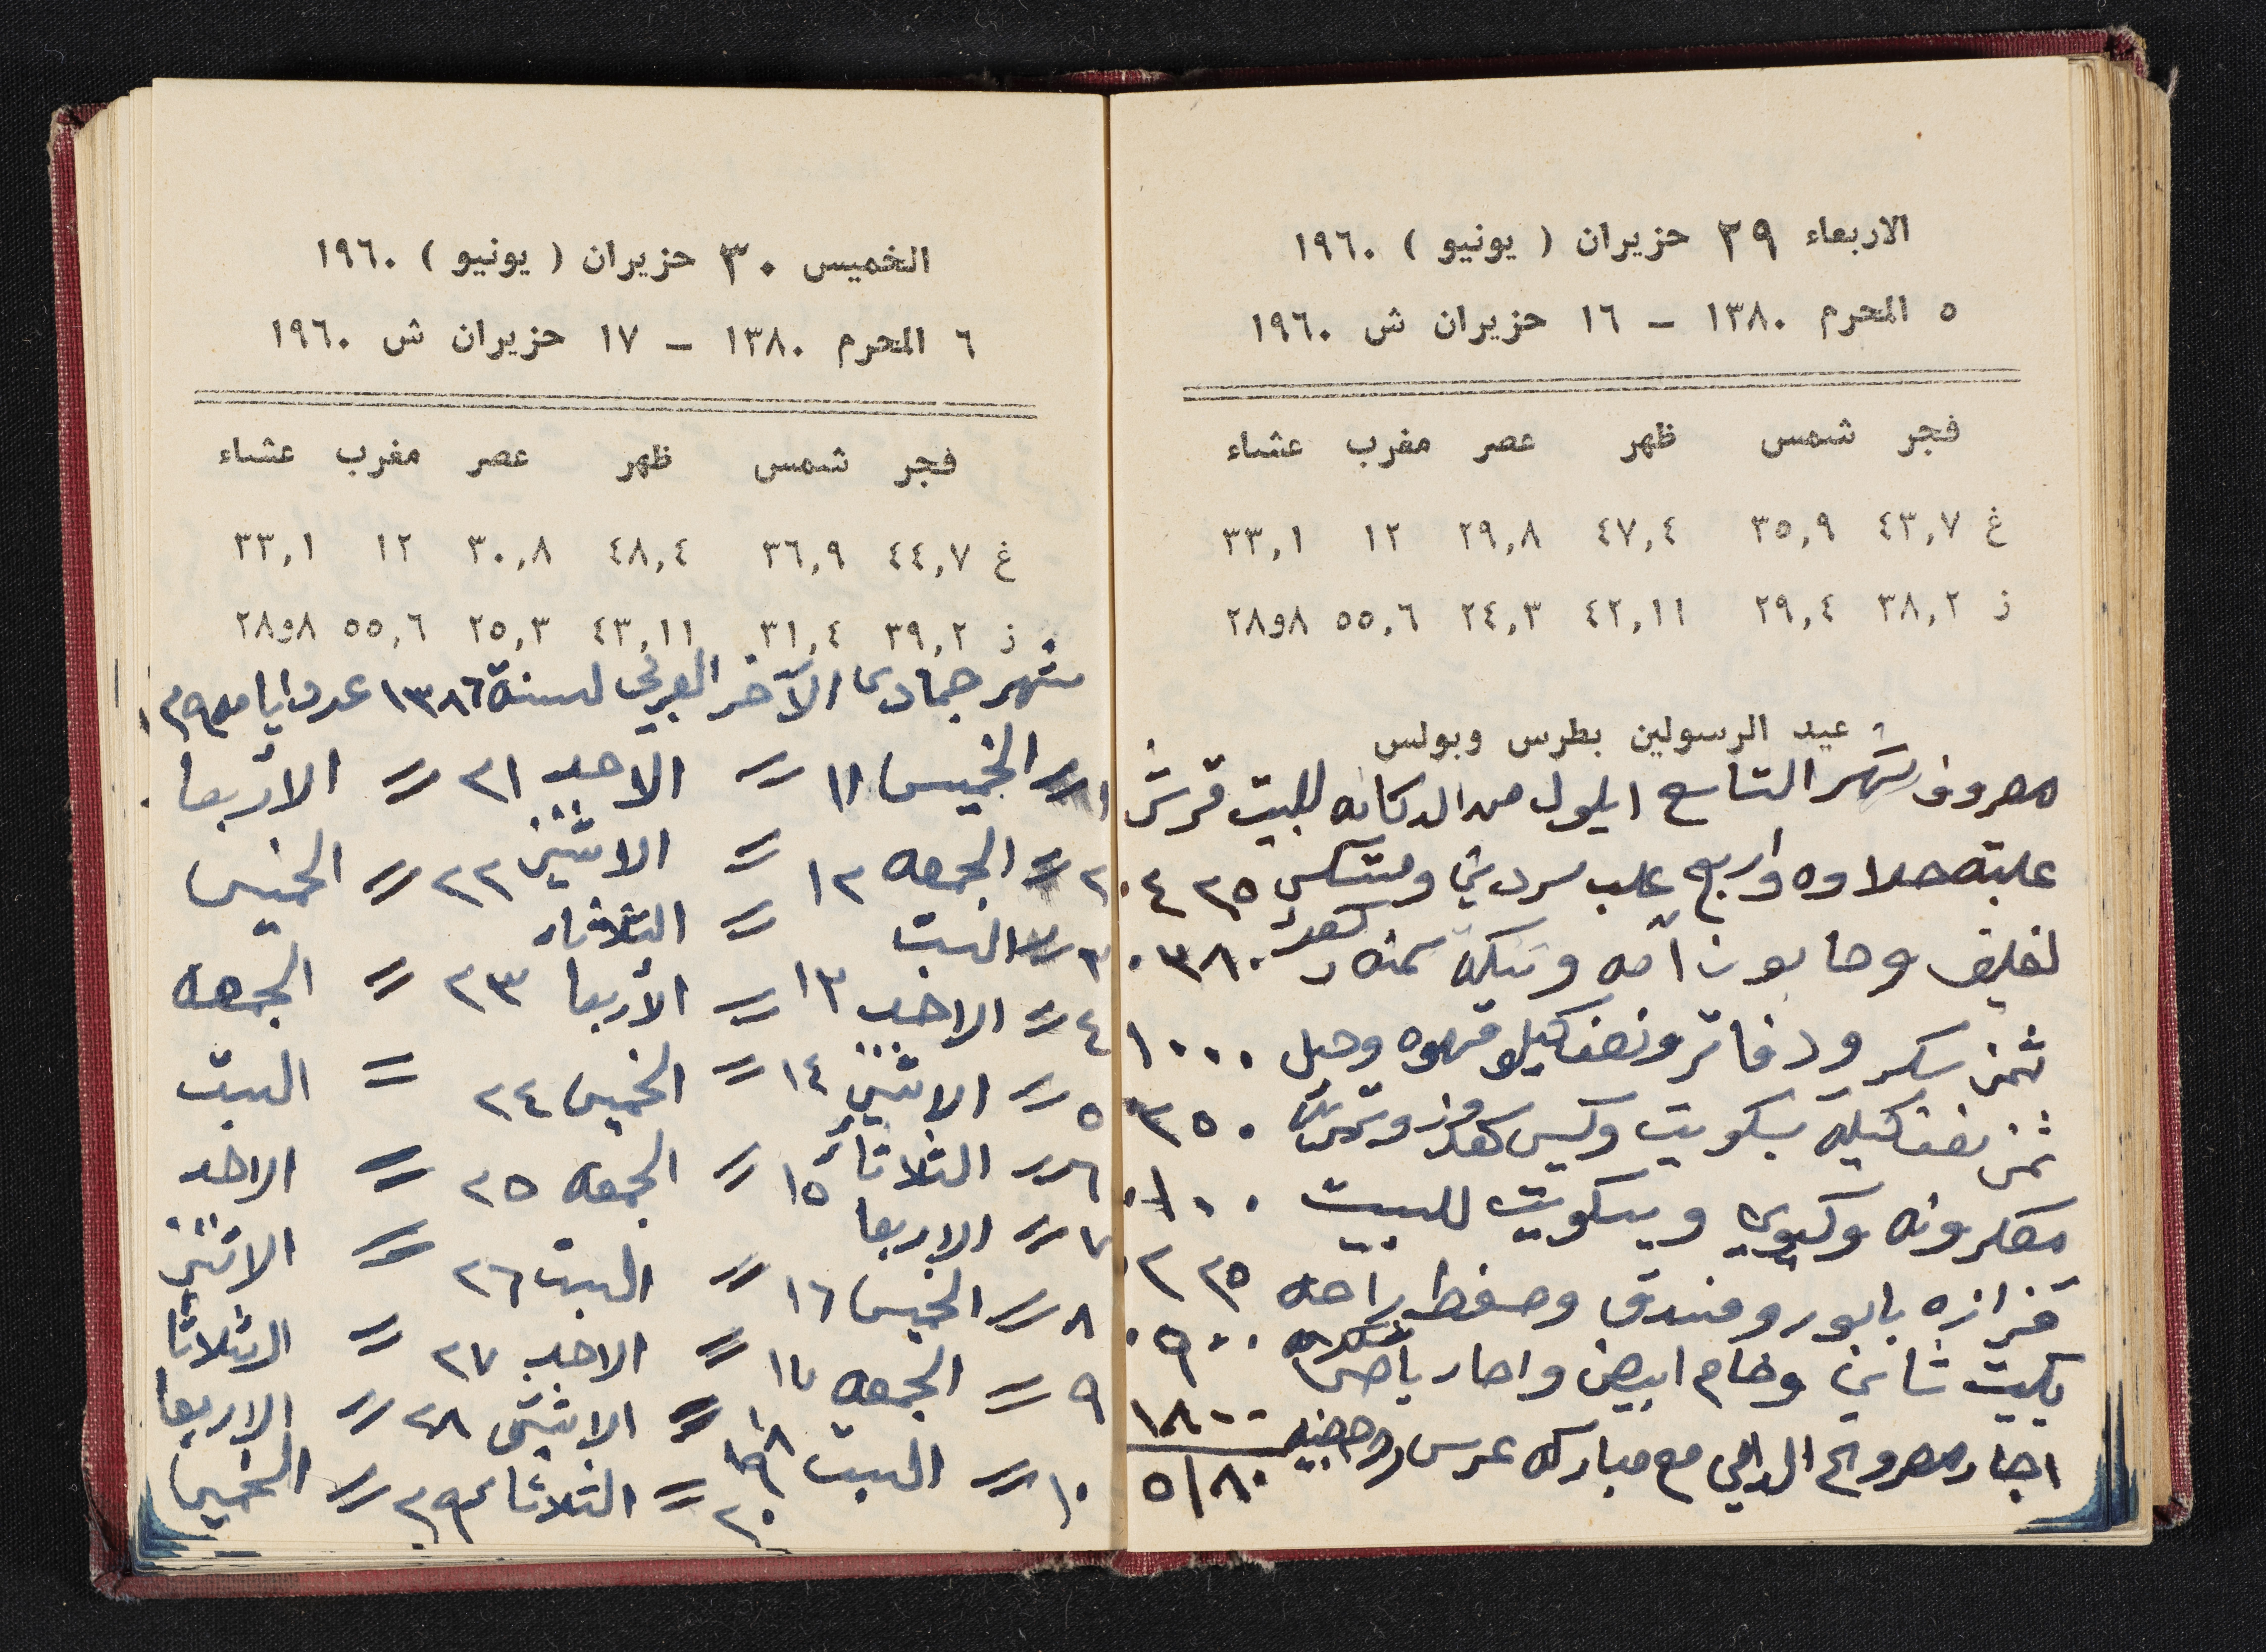 الاربعاء ٢٩ حزيران ( يونيو ) ١٩٦٠
٥ المحرم ١٣٨٠ – ١٦ حزيران ش ١٩٦٠
فجر شمس ظهر عصر مغرب عشاء
غ ٤٣,٧ ٣٥,٩ ٤٧,٤ ٢٩,٨ ١٢ ٣٣,١
ز ٣٨,٢ ٢٩,٤ ٤٢,١١ ٢٤,٣ ٥٥,٦ ٢٨و٨
عيد الرسولين بطرس وبولس
مصروف شهر التاسع ايلول من الدكانه للبيت قرش
علبة حلاوه واربع علب سردين ٤٢٥
وصابون وتنكة سمنه ٣٨٠
ثمن سكر ودفاتر ونصف كيلو قهوه وحبل ١٠٠٠
ثمن نصف كيله بسكويت وكيس ٣٥٠
معكرونه وبسكويت للبيت ١٠٠
قزازه بابور وفستق راحه ٢٢٥
بكيت شاني وخام ابيض واجار باص ٩٠٠
اجار مع مباركه عرس ١٨٠٠
٥١٨٠
الخميس ٣٠ حزيران ( يونيو ) ١٩٦٠
٦ المحرم ١٣٨٠ – ١٧ حزيران ش ١٩٦٠
فجر شمس ظهر عصر مغرب عشاء
غ ٤٤,٧ ٣٦,٩ ٤٨,٤ ٣٠,٨ ١٢ ٣٣,١
ز ٣٩,٢ ٣١,٤ ٤٣,١١ ٢٥,٣ ٥٥,٦ ٢٨و٨
شهر جمادى الآخر العربي لسنة ١٣٨٦ عدد ايامه ٢٩
١ = الخميس ١١ = الاحد ٢١ = الأربعا
٢ = الجمعه ١٢ = الاثنين ٢٢ = الخميس
٣ = السبت ١٣ = الثلاثاء ٢٣ = الجمعه
٤ = الاحد = الأربعا
٥ = الاثنين ١٤ = الخميس ٢٤ = السبت
٦ = الثلاثاء ١٥ = الجمعه ٢٥ = الاحد
٧ = الاربعا ١٦ = السبت ٢٦ = الاثنين
٨ = الخميس ١٧ = الاحد ٢٧ = الثلاثا
٩ = الجمعه ١٨ = الاثنين ٢٨ = الاربعا
١٠ = السبت ٢٠ = الثلاثا ٢٩ = الخميس